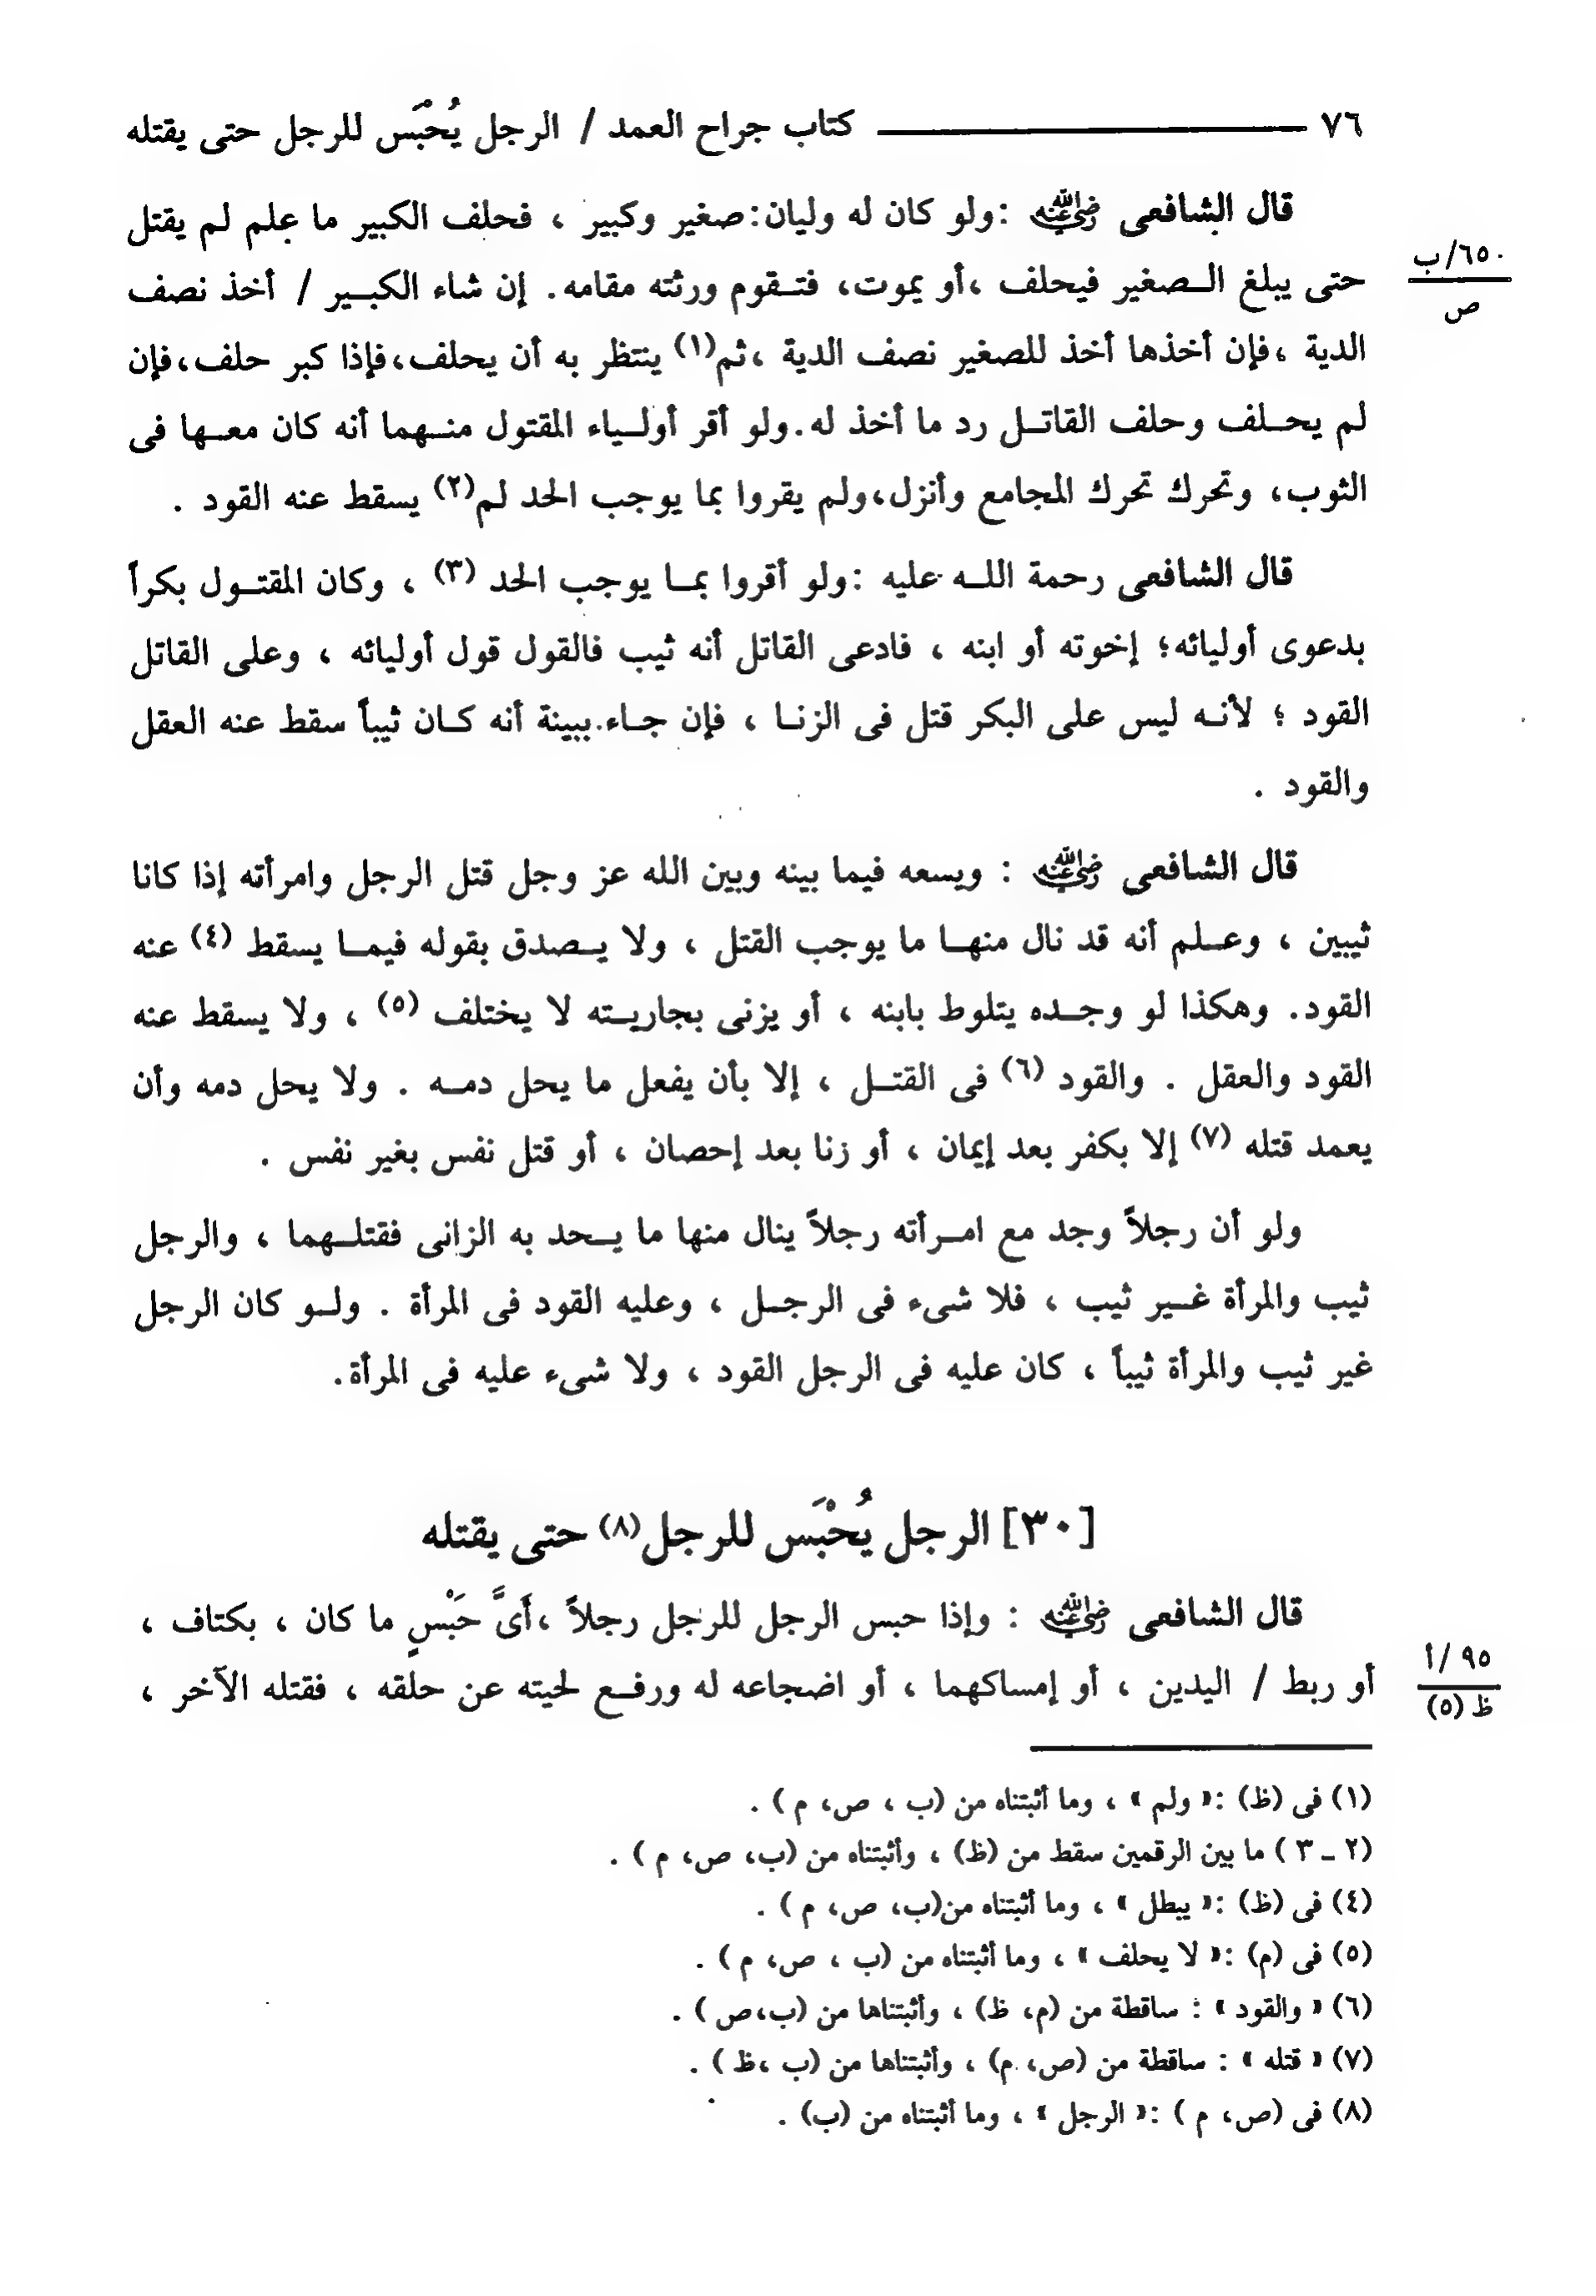 ٧٦ ــــــــــــ كتاب جراح العمد / الرجل يُحْبَس للرجل حتى يقتله
قال الشافعى رضي الله عنه : ولو كان له وليان: صغير وكبير ، فحلف الكبير ما علم لم يقتل
حتى يبلغ الـصغير فيحلف ،أو يموت، فتـقوم ورثته مقامه. إن شاء الكبـير / أخذ نصف
٦٥٠/ ب
ص
الدية ،فإن أخذها أخذ للصغير نصف الدية ،ثم(١) ينتظر به أن يحلف،فإذا كبر حلف،فإن
لم يحـلف وحلف القاتـل رد ما أخذ له.ولو أقر أولـياء المقتول منـهما أنه كان معـها فى
الثوب، وتحرك تحرك المجامع وأنزل،ولم يقروا بما يوجب الحد لم(٢) يسقط عنه القود .
قال الشافعى رحمة اللـه عليه :ولو أقروا بمـا يوجب الحد (٣) ، وكان المقتـول بكراً
بدعوى أوليائه؛ إخوته أو ابنه ، فادعى القاتل أنه ثيب فالقول قول أوليائه ، وعلى القاتل
القود ؛ لأنـه ليس على البكر قتل فى الزنـا ، فإن جـاء ببينة أنه كـان ثيباً سقط عنه العقل
والقود .
قال الشافعى رضي الله عنه : ويسعه فيما بينه وبين الله عز وجل قتل الرجل وامرأته إذا كانا
ثيبين ، وعـلم أنه قد نال منهـا ما يوجب القتل ، ولا يـصدق بقوله فيمـا يسقط (٤) عنه
القود. وهكذا لو وجـده يتلوط بابنه ، أو يزنى بجاريـته لا يختلف (٥) ، ولا يسقط عنه
القود والعقل . والقود (٦) فى القتـل ، إلا بأن يفعل ما يحل دمـه . ولا يحل دمه وأن
يعمد قتله (٧) إلا بكفر بعد إيمان ، أو زنا بعد إحصان ، أو قتل نفس بغير نفس .
ولو أن رجلاً وجد مع امـرأته رجلاً ينال منها ما يـحد به الزانى فقتلـهما ، والرجل
ثيب والمرأة غـير ثيب ، فلا شىء فى الرجـل ، وعليه القود فى المرأة . ولـو كان الرجل
غير ثيب والمرأة ثيباً ، كان عليه فى الرجل القود ، ولا شىء عليه فى المرأة.
[٣٠] الرجل يُحْبَس للرجل(٨) حتى يقتله
قال الشافعى رضي الله عنه : وإذا حبس الرجل للرجل رجلاً ،أَىَّ حَبْسٍ ما كان ، بكتاف ،
أو ربط / اليدين ، أو إمساكهما ، أو اضجاعه له ورفـع لحيته عن حلقه ، فقتله الآخر ،
٩٥ /أ
ظ (٥)
(١) فى (ظ) :« ولم » ، وما أثبتناه من (ب ، ص، م ) .
(٢ ـ ٣ ) ما بين الرقمين سقط من (ظ) ، وأثبتناه من (ب، ص، م ) .
(٤) فى (ظ) :« يبطل » ، وما أثبتناه من(ب، ص، م ) .
(٥) فى (م) :« لا يحلف » ، وما أثبتناه من (ب ، ص، م ) .
(٦) « والقود » : ساقطة من (م، ظ) ، وأثبتناها من (ب،ص ) .
(٧) « قتله » : ساقطة من (ص، م) ، وأثبتناها من (ب ،ظ ) .
(٨) فى (ص، م ) :« الرجل » ، وما أثبتناه من (ب) .